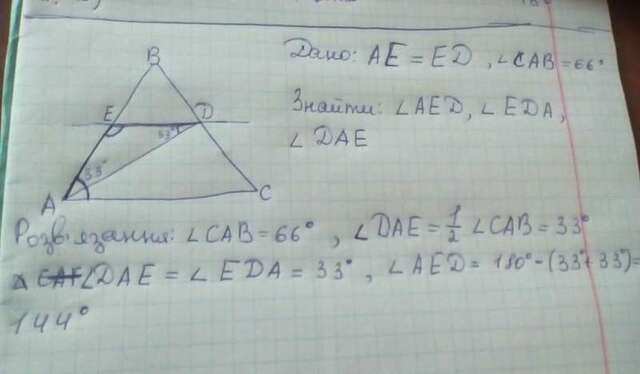 B
Дано: AE = ED, ∠CAB = 66°
E D
33°
Знайти: ∠AED, ∠EDA,
∠DAE
33°
A C
Розв'язання: ∠CAB = 66°, ∠DAE = 1/2 ∠CAB = 33°
∠DAE = ∠EDA = 33°, ∠AED = 180° - (33° + 33°) =
144°